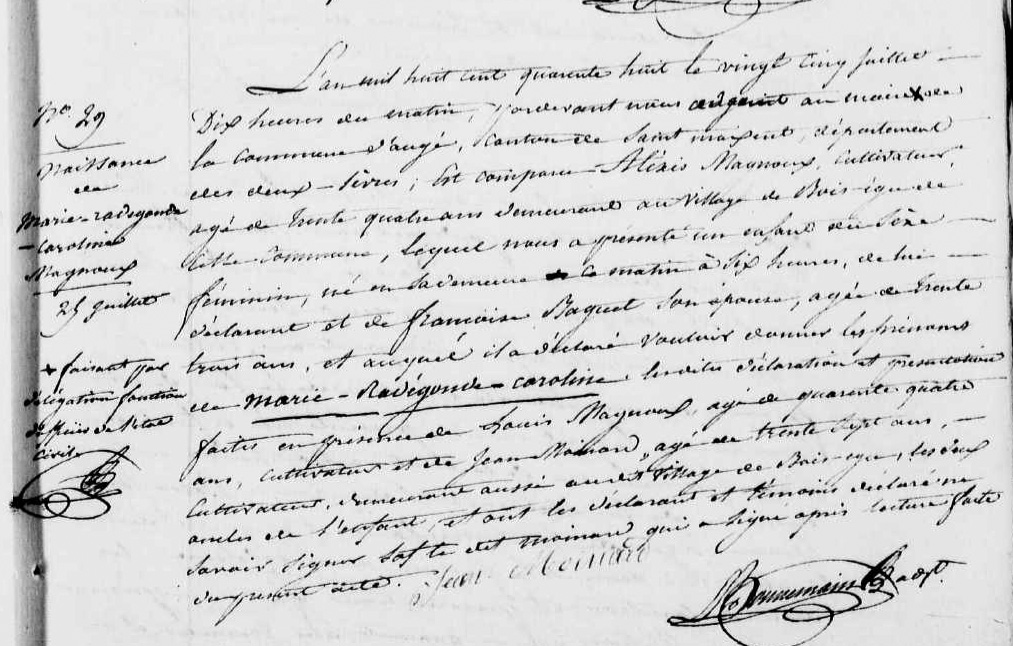 No. 29
Naissance
de
Marie-radégonde
-caroline
Magnoux
25 Juillet
+ faisant par
délégation fonction
d'officier de l'état
civil
L'an mil huit cent quarente huit le vingt cinq juillet
Dix heures du matin, Pardevant nous adjoint au maire X de
la commune d'augé, canton de Saint maixent, département
des deux-Sèvres; Est comparu Aléxis Magnoux, cultivateur,
agé de trente quatre ans demeurant au village de Bois-
cette commune, lequel nous a présenté un enfant du Séxe
féminin, né en sa demeure ce matin à Six heures, de lui
déclarant et de francoise Baquet Son épouse, agée de trente
trois ans, et auquel il a déclaré vouloir donner les prénoms
de Marie-Radégonde-caroline, les dites déclaration et présentation
faites en présence de Louis Magnoux agé de quarente quatre
ans, cultivateur et de Jean Moinard, agé de trente sept ans,
Cultivateur, demeurant aussi au dit village de Bois- les deux
oncles de l'enfant, et ont les déclarant et témoins déclaré ne
Savoir Signer Sauf le dit moinard qui a Signé après lecture faite
du présent acte. Jean Moinard
Bonnemain adjt.